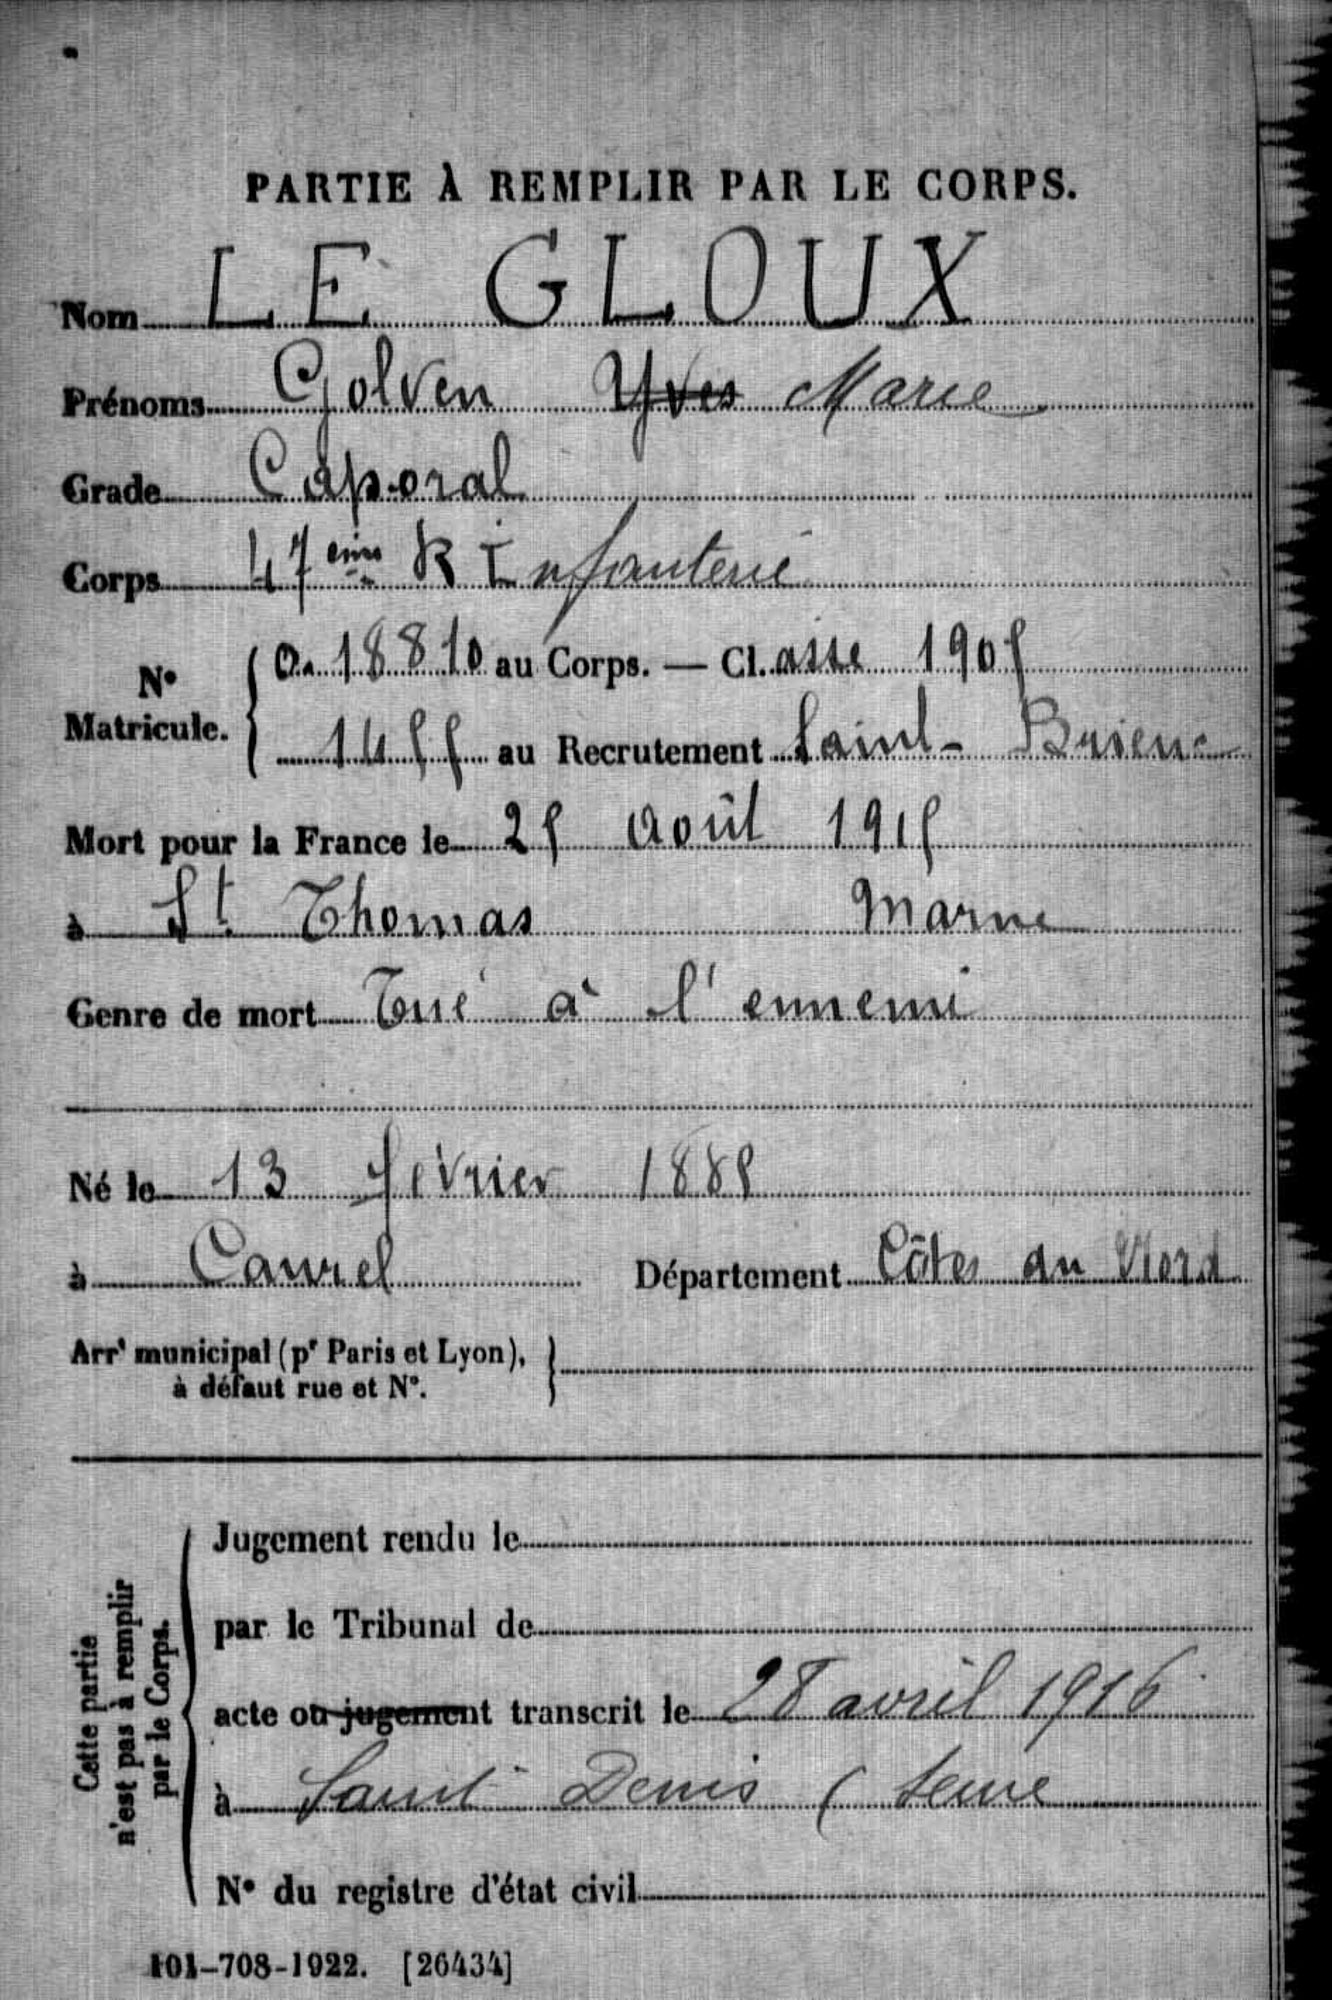 PARTIE À REMPLIR PAR LE CORPS.
Nom LE GLOUX
Prénoms Golven Yves Marie
Grade Caporal
Corps 47eme R Infanterie
N° Matricule. 018810 au Corps. — Cl. asse 1905
1455 au Recrutement Saint-Brieuc
Mort pour la France le 25 Août 1915
à St Thomas Marne
Genre de mort Tué à l'ennemi
Né le 13 février 1885
à Caurel Département Côtes du Nord
Arrt municipal (pr Paris et Lyon),
à défaut rue et N°.
Cette partie
n'est pas à remplir
par le Corps.
Jugement rendu le
par le Tribunal de
acte ou jugement transcrit le 28 avril 1916
à Saint Denis (Seine
N° du registre d'état civil
101-708-1922. [26434]